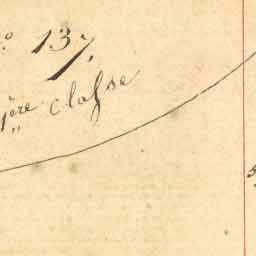 ° 137,
1ère Classe